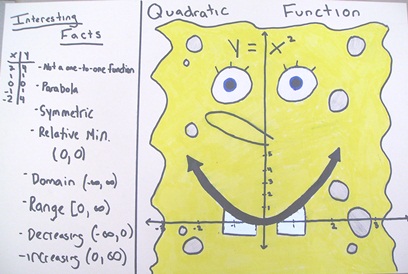 Interesting
Facts
X Y
2 4
1 1
0 0
-1 1
-2 4
- Not a one-to-one function
- Parabola
- Symmetric
- Relative Min.
(0,0)
- Domain (-∞,∞)
- Range [0,∞)
- Decreasing (-∞,0)
- increasing (0,∞)
Quadratic Function
Y = X²
5
4
3
2
1
-2 -1 1 2 3